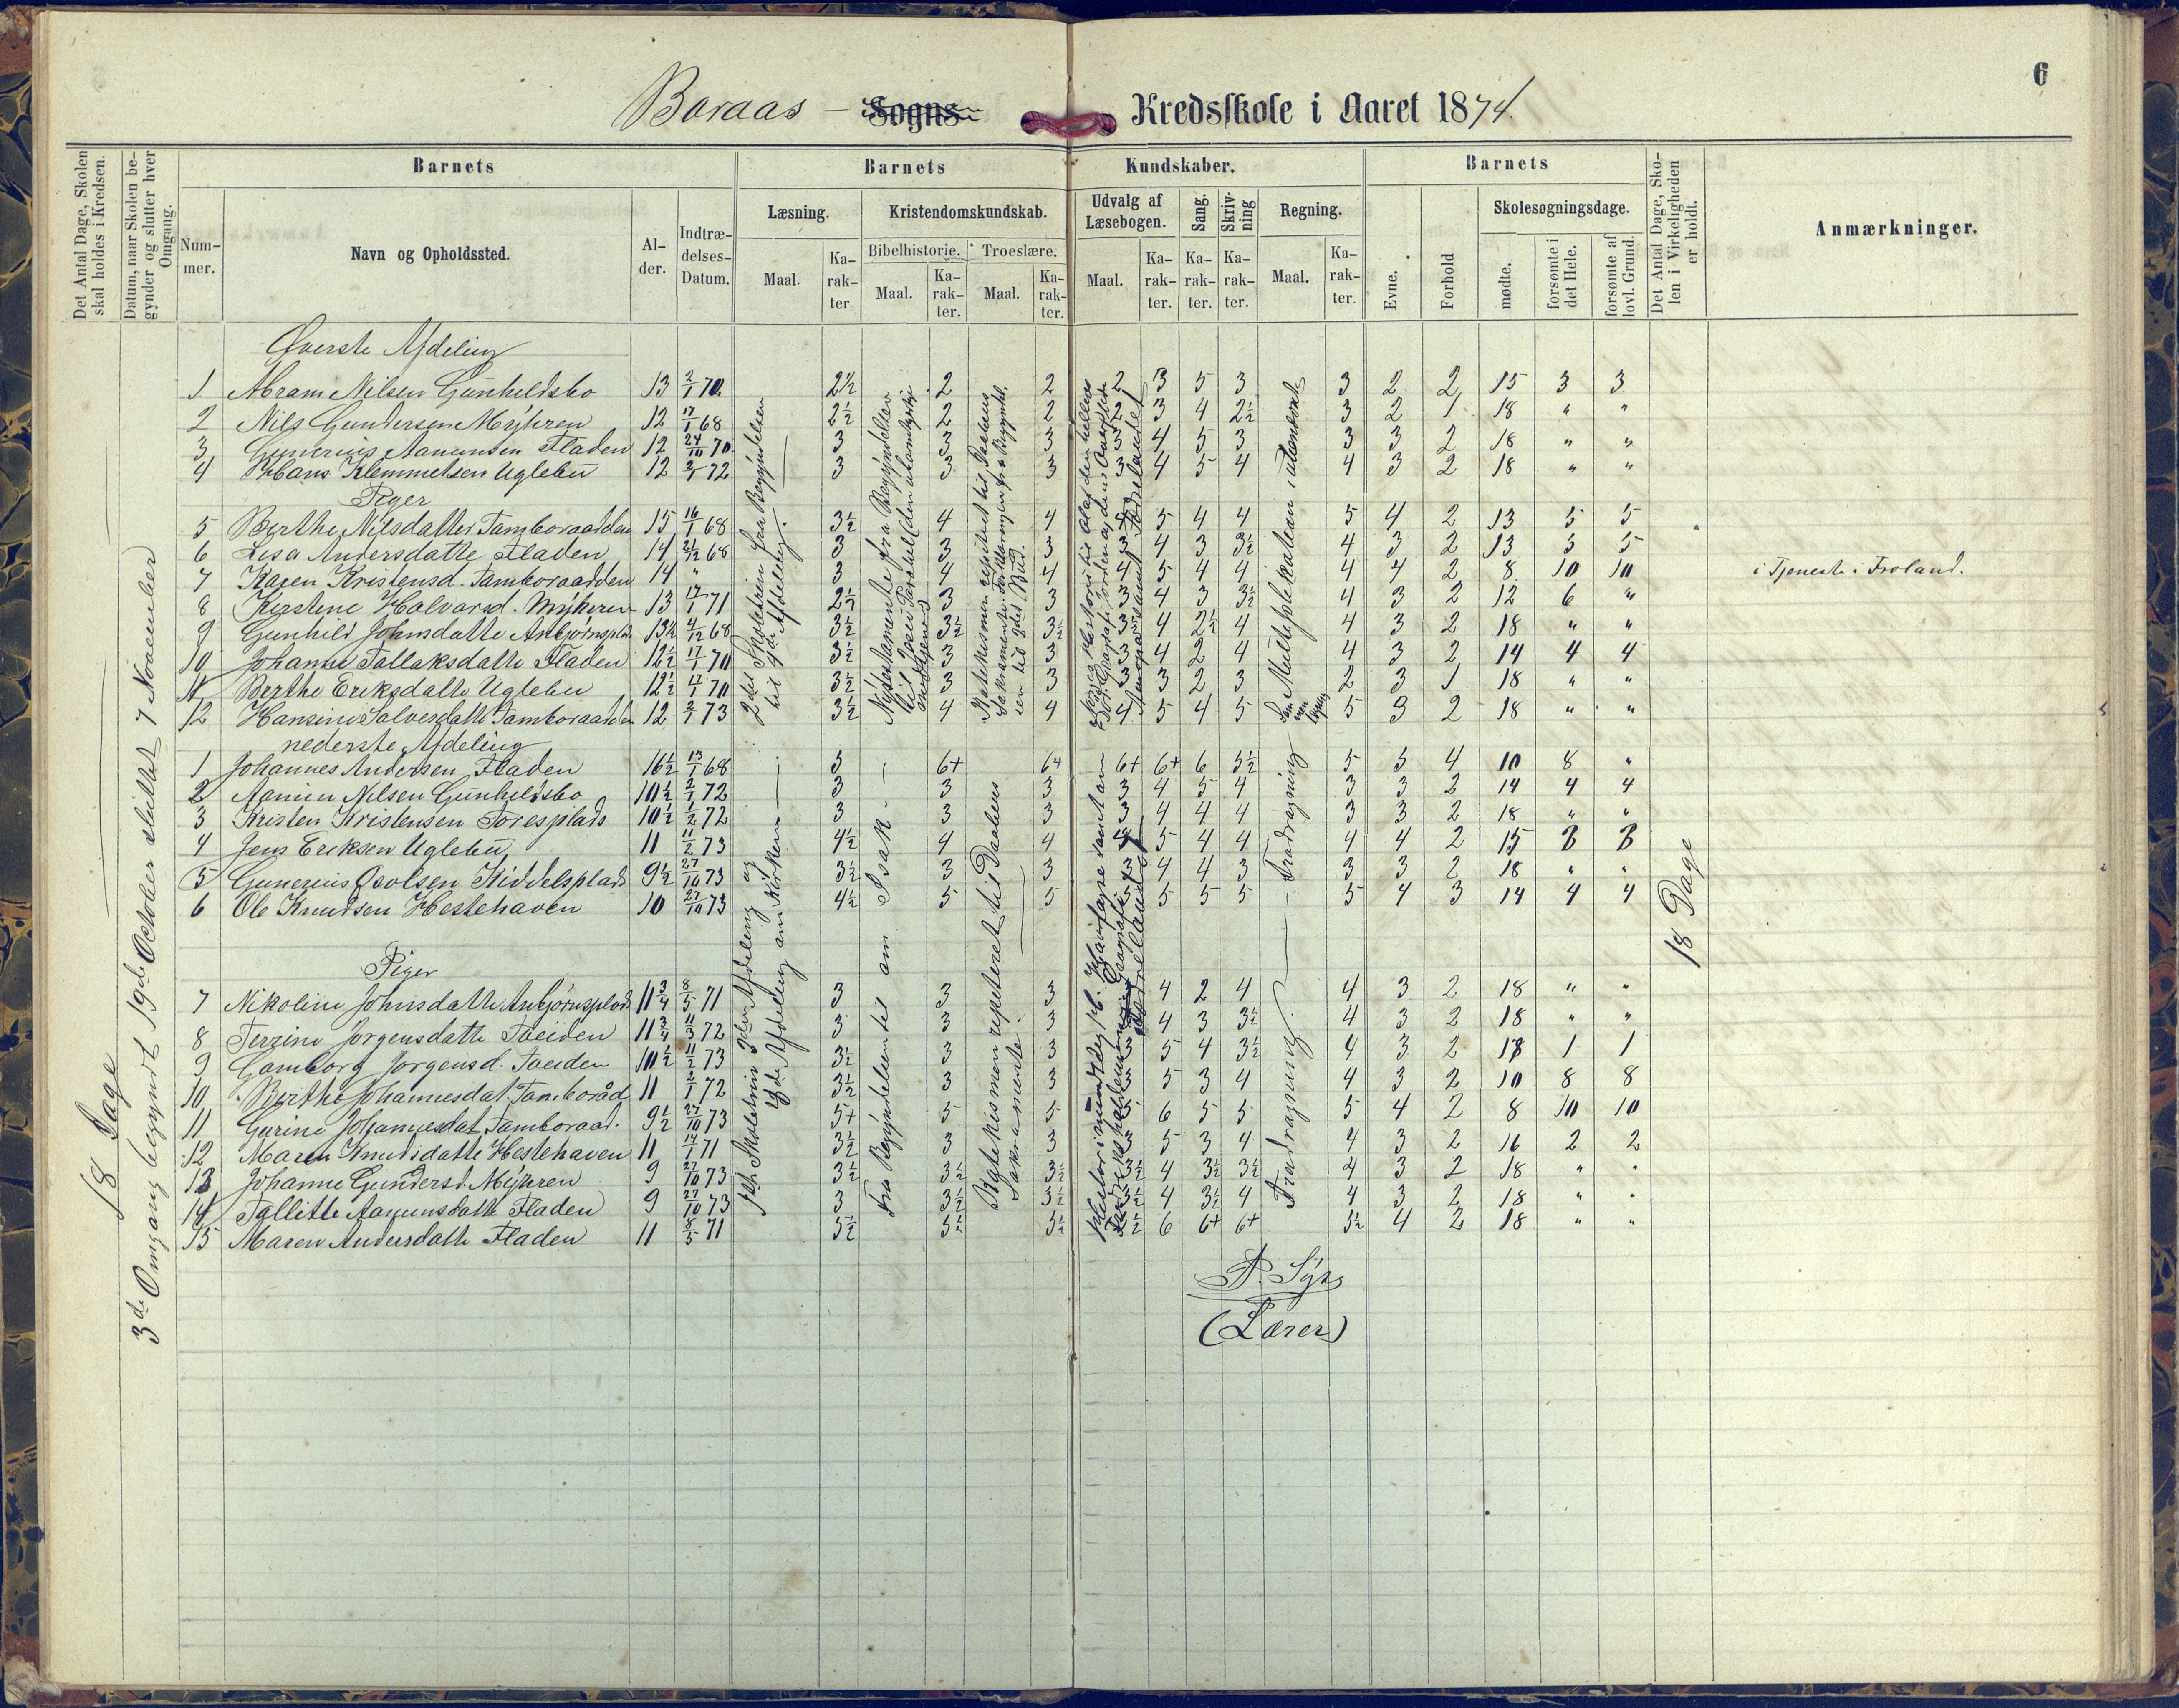 6
Boraas - Sogns Kredsskole i Aaret 1874.
Det Antal Dage, Skolen skal holdes i Kredsen.
Datum, naar Skolen begynder og slutter hver Omgang.
Barnets
Barnets Kundskaber.
Barnets
Det Antal Dage, Skolen i Virkeligheden er holdt.
Anmærkninger.
Nummer.
Navn og Opholdssted.
Alder.
Indtrædelses-Datum.
Læsning.
Kristendomskundskab.
Udvalg af Læsebogen.
Sang.
Skrivning
Regning.
Evne.
Forhold
Skolesøgningsdage.
Maal.
Karakter
Bibelhistorie.
Troeslære.
Maal.
Karakter.
Maal.
Karakter.
Maal.
Karakter.
Karakter.
Karakter.
Maal.
Karakter.
mødte.
forsømte i det Hele.
forsømte af lovl. Grund.
18 Dage
3de Omgang begyndt 19de October sluttet 7 November
Øverste Afdeling
1 Abram Nilsen Gunheldsbo 13 2/1 70 2½ 2 2 2 3 5 3 3 2 2 15 3 3
2 Nils Gundersen Myhren 12 17/1 68 2½ 2 2 2 3 4 2½ 3 2 1 18 " "
3 Gunerius Aanunsen Fladen 12 24/10 70 3 3 3 3 4 5 3 3 3 2 18 " "
4 Hans Klemmetsen Uglebu 12 2/1 72 3 3 3 3 4 5 4 4 3 2 18 " "
Piger
5 Berthe Nilsdatter Tamboraadden 15 16/1 68 3½ 4 4 5 4 4 5 4 2 13 5 5
6 Lisa Andersdatte Fladen 14 21/12 68 3 3 3 3 4 3 3½ 4 3 2 13 5 5
7 Karen Kristensd. Tamboraadden 14 " 3 4 4 4 5 4 4 4 4 2 8 10 10 i Tjeneste i Froland.
8 Kirstine Halvorsd. Myhren 13 17/1 71 2½ 3 3 3 4 3 3½ 4 3 2 12 6 "
9 Gunhild Johnsdatte Anbjørnsplds 13½ 4/12 68 3½ 3½ 3½ 3 4 2½ 4 4 3 2 18 " "
10 Johanne Tallaksdatte Fladen 12½ 17/1 70 3½ 3 3 3 4 2 4 4 3 2 14 4 4
11 Berthe Eriksdatte Uglebu 12½ 17/1 70 3½ 3 3 3 3 2 3 2 3 1 18 " "
12 Hansine Salvesdatte Tamboraadden 12 2/1 73 3½ 4 4 4 5 4 5 5 3 2 18 " "
2det Skoletrin fra Begyndelsen til 4de Afdeling.
Nyetestamente fra Begyndelsen til
Katekismen repetiret til Daabens Sakramente.
nederste Afdeling
1 Johannes Andersen Fladen 16½ 13/1 68 5 6+ 6+ 6+ 6+ 6 5½ 5 5 4 10 8 "
2 Aanun Nilsen Gunheldsbo 10½ 2/1 72 3 3 3 3 4 5 4 3 3 2 14 4 4
3 Kristen Kristensen Toresplads 10½ 1/2 72 3 3 3 3 4 4 4 3 3 2 18 " "
4 Jens Eriksen Uglebu 11 11/2 73 4½ 4 4 4 5 4 4 4 4 2 15 3 3
5 Gunerius Osolsen Kiddelsplads 9½ 27/10 73 3½ 3 3 3 4 4 3 3 3 2 18 " "
6 Ole Knudsen Hestehaven 10 27/10 73 4½ 5 5 5 5 5 5 5 4 3 14 4 4
Piger
7 Nikoline Johnsdatte Anbjørnsplads 11¾ 8/5 71 3 3 3 4 2 4 4 3 2 18 " "
8 Terrine Jorgensdatte Toeiden 11¾ 11/3 72 3 3 3 4 3 3½ 4 3 2 18 " "
9 Gomborg Jorgensd. Toeiden 10½ 11/2 73 3½ 3 3 3 5 4 3½ 4 3 2 17 1 1
10 Berthe Johannesdat. Tamboråd 11 2/1 72 3½ 3 3 3 5 3 4 4 3 2 10 8 8
11 Gurine Johannesdat Tamboraad. 9½ 27/10 73 5+ 5 5 5 6 5 5 5 4 2 8 10 10
12 Maren Knudsdatte Hestehaven 11 14/1 71 3½ 3 3 3 5 3 4 4 3 2 16 2 2
13 Johanne Gundersd. Myhren 9 27/10 73 3½ 3½ 3½ 3½ 4 3½ 3½ 4 3 2 18 " "
14 Tallette Aanunsdatte Fladen 9 27/10 73 3 3½ 3½ 3½ 4 3½ 4 4 3 2 18 " "
15 Maren Andersdatte Fladen 11 8/5 71 5½ 5½ 5½ 5½ 6 6+ 6+ 5½ 4 2 18 " "
Fra Begyndelsen til om Isak
Katekismen repeteret til Daabens Sakramente.
Fradragning
18 Dage
P. Syrs
(Lærer)